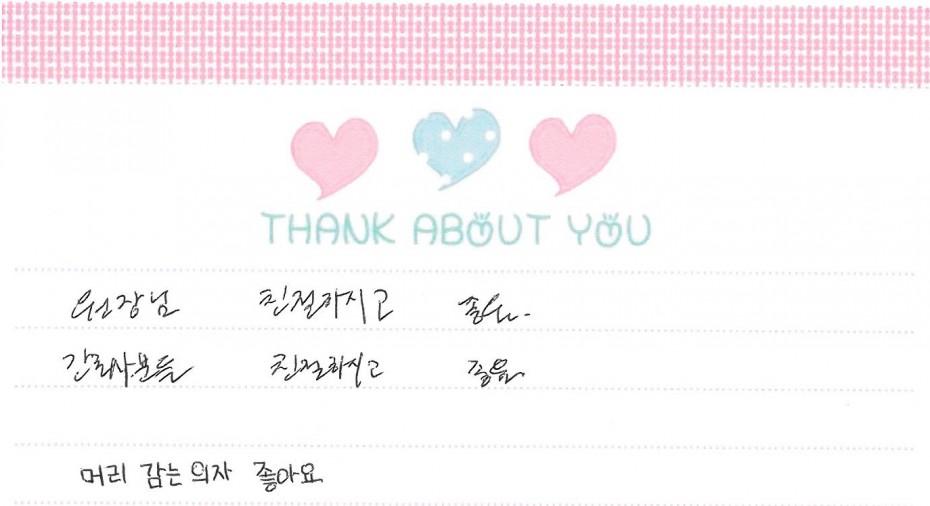 THANK ABOUT YOU
원장님 친절하시고 좋음.
간호사분들 친절하시고 좋음
머리 감는 의자 좋아요